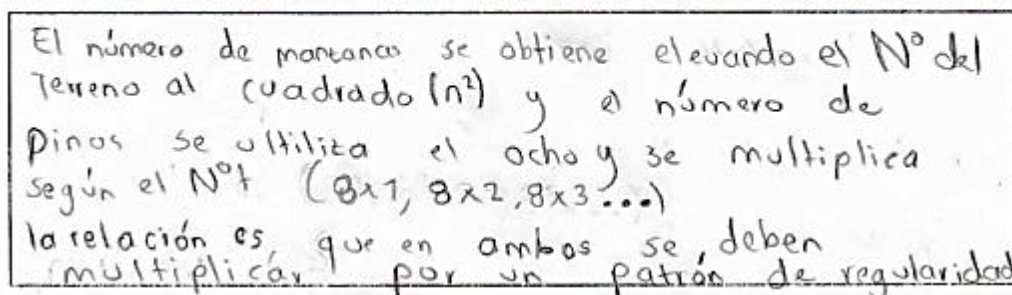 El número de manzanas se obtiene elevando el N° del
Terreno al cuadrado (n²) y el número de
pinos se ultiliza el ocho y se multiplica
según el N°t (8x1, 8x2, 8x3...)
la relación es, que en ambos se deben
multiplicar por un patrón de regularidad